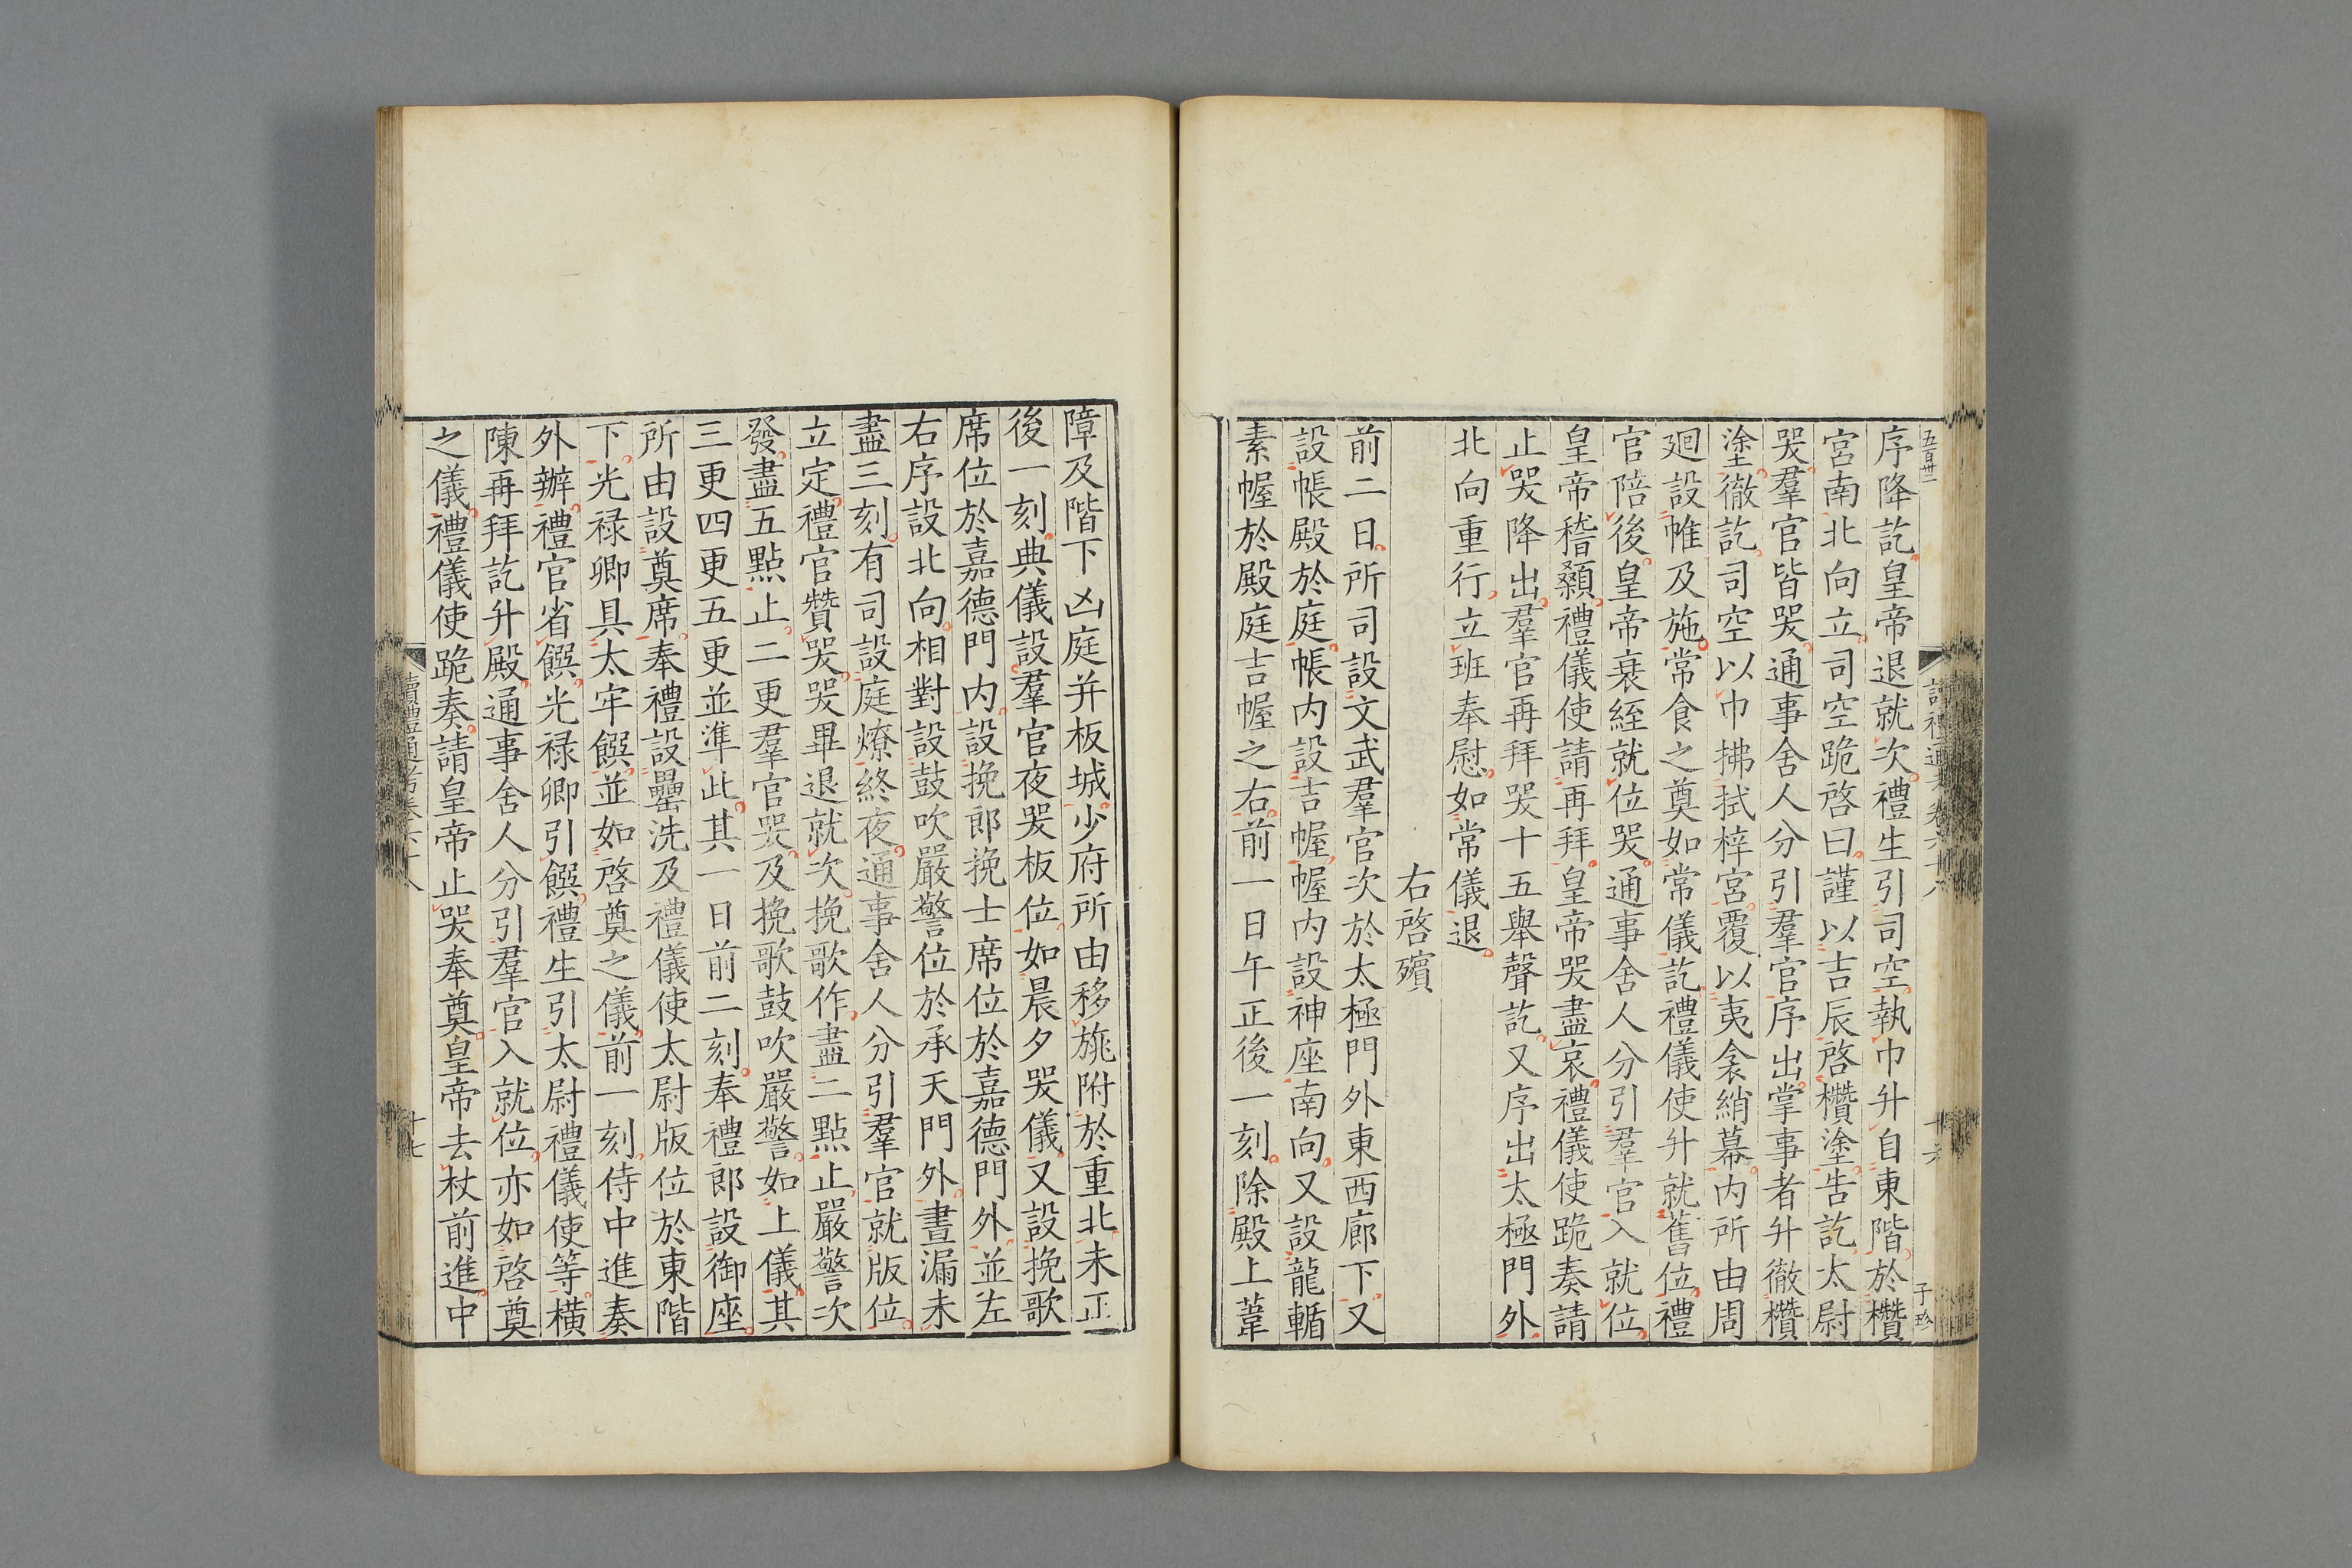 五百卅二
序降訖皇帝退就次禮生引司空執巾升自東階於欑
宮南北向立司空跪啓曰謹以吉辰啓欑塗告訖太尉
哭羣官皆哭通事舍人分引羣官序出掌事者升徹欑
塗徹訖司空以巾拂拭梓宮覆以夷衾綃幕内所由周
廻設帷及施常食之奠如常儀訖禮儀使升就舊位禮
官陪後皇帝衰絰就位哭通事舍人分引羣官入就位
皇帝稽顙禮儀使請再拜皇帝哭盡哀禮儀使跪奏請
止哭降出羣官再拜哭十五舉聲訖又序出太極門外
北向重行立班奉慰如常儀退
右啓殯
前二日所司設文武羣官次於太極門外東西廊下又
設帳殿於庭帳内設吉幄幄内設神座南向又設龍輴
素幄於殿庭吉幄之右前一日午正後一刻除殿上葦
障及階下凶庭并板城少府所由移旐附於重北未正
後一刻典儀設羣官夜哭板位如晨夕哭儀又設挽歌
席位於嘉德門内設挽郎挽士席位於嘉德門外並左
右序設北向相對設鼓吹嚴警位於承天門外晝漏未
盡三刻有司設庭燎終夜通事舍人分引羣官就版位
立定禮官贊哭哭畢退就次挽歌作盡二點止嚴警次
發盡五點止二更羣官哭及挽歌鼓吹嚴警如上儀其
三更四更五更並準此其一日前二刻奉禮郎設御座
所由設奠席奉禮設罍洗及禮儀使太尉版位於東階
下光禄卿具太牢饌並如啓奠之儀前一刻侍中進奏
外辦禮官省饌光禄卿引饌禮生引太尉禮儀使等橫
陳再拜訖升殿通事舍人分引羣官入就位亦如啓奠
之儀禮儀使跪奏請皇帝止哭奉奠皇帝去杖前進中
讀禮通考卷六十八
十七